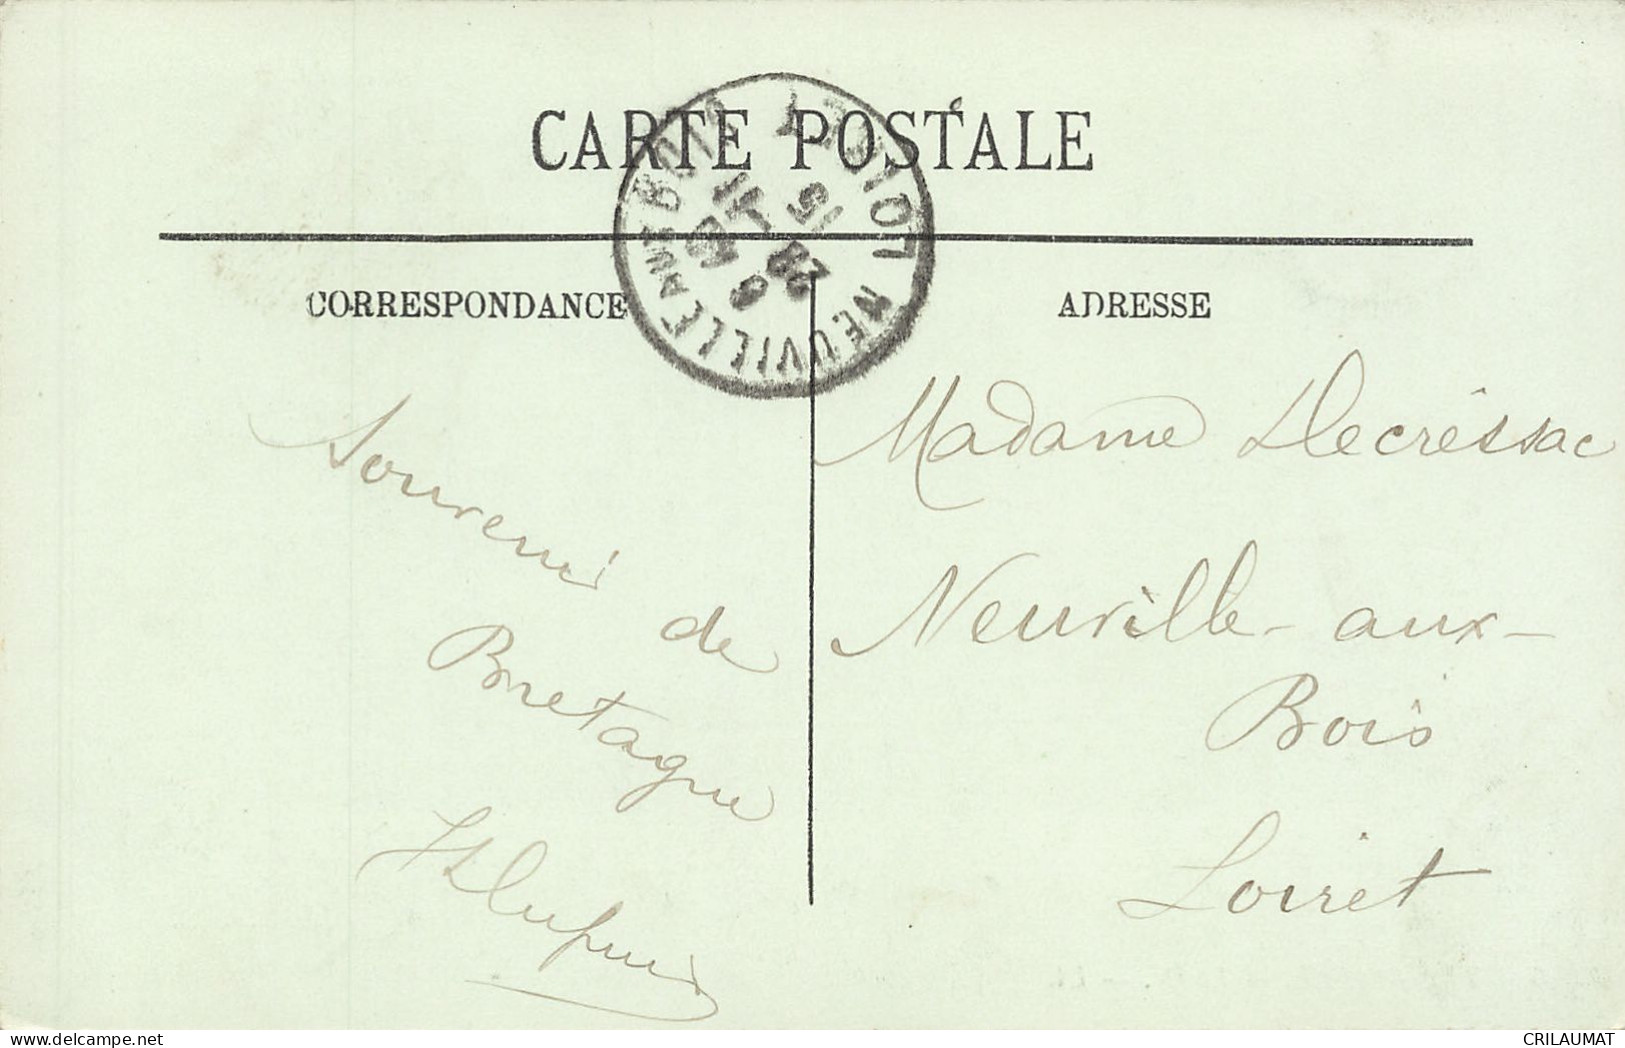 CARTE POSTALE
NEUVILLE AUX BOIS LOIRET
15
28
CORRESPONDANCE
ADRESSE
Souvenir
de
Bretagne
Madame Decressac
Neuville-aux-
Bois
Loiret
CRILAUMAT